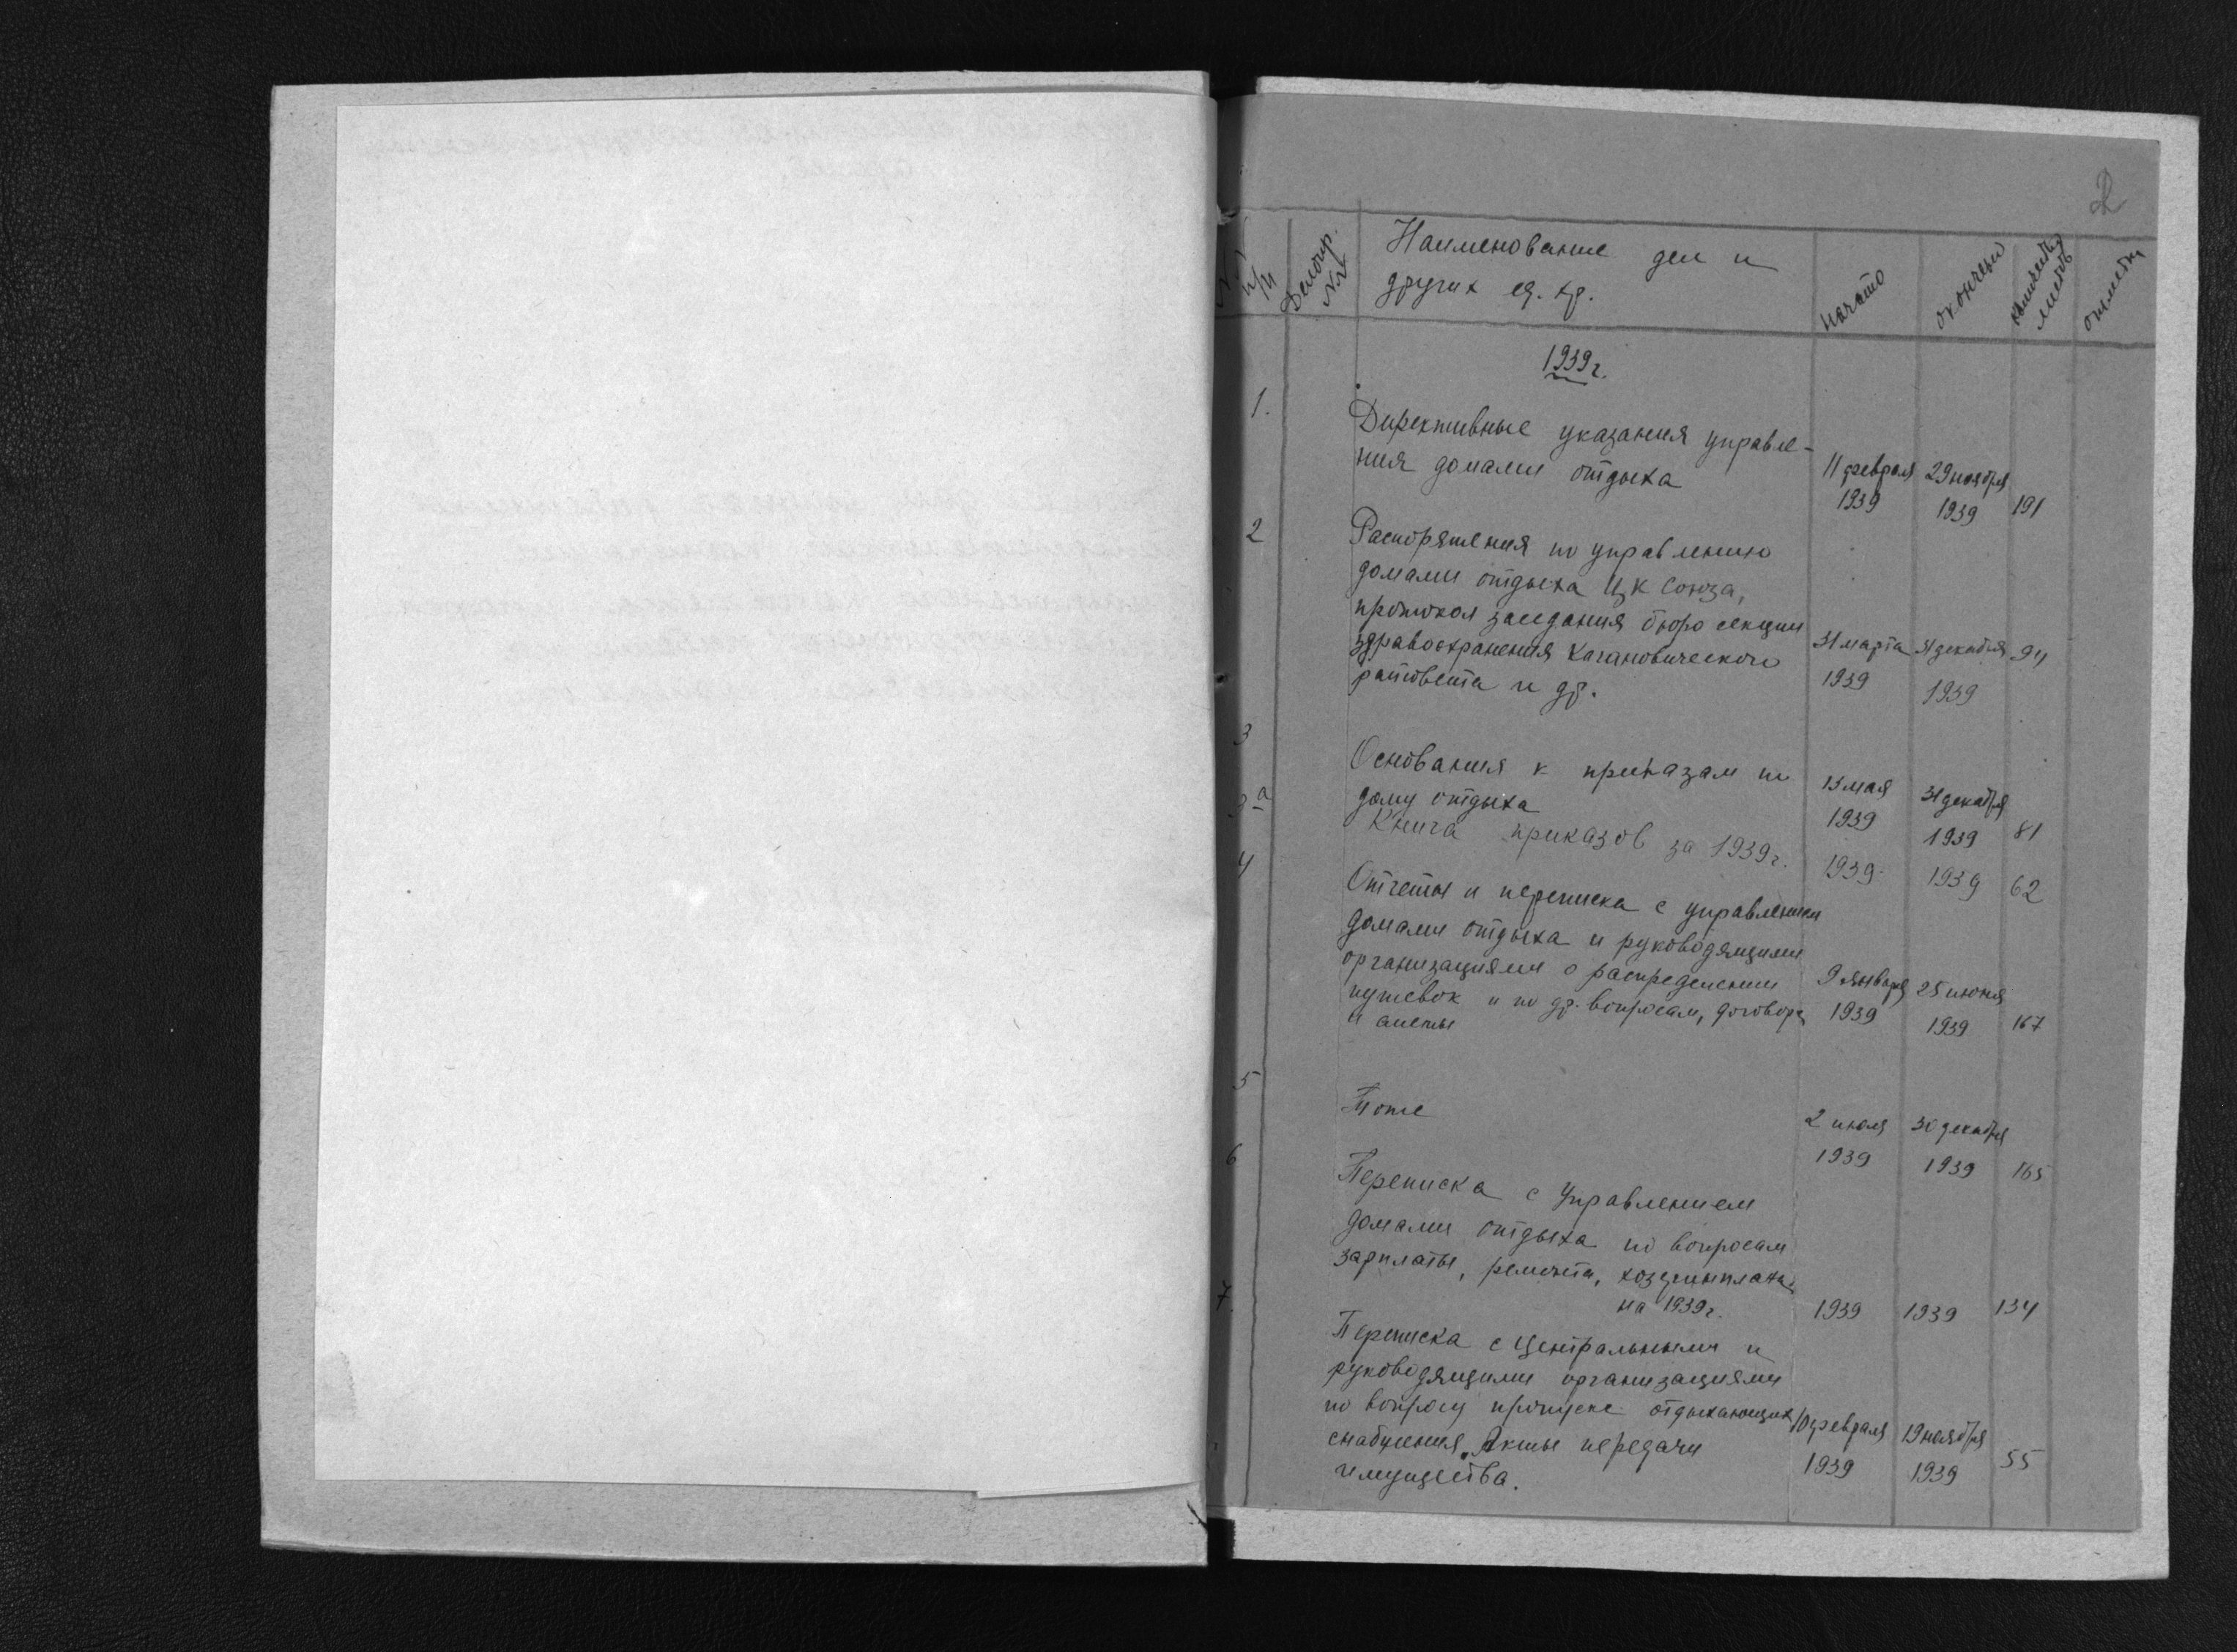 2
№№ п/п
Делопр. №№
Наименование дел и
других ед. хр.
начато
окончен
количество листов
отметки
1939 г.
1.
Директивные указания управле-
ния домами отдыха
11 февраля 1939
29 ноября 1939
191
2
Распоряжения по управлению
домами отдыха ЦК Союза,
протокол заседания бюро секции
здравоохранения Кагановического
райсовета и др.
31 марта 1939
31 декабря 1939
94
3
Основания к приказам по
дому отдыха
13 мая 1939
31 декабря 1939
81
3а
Книга приказов за 1939 г.
1939
1939
62
4
Отчеты и переписка с управлением
домами отдыха и руководящими
организациями о распределении
путевок и по др. вопросам, договора
и
9 января 1939
25 июня 1939
167
5
Тоже
2 июля 1939
30 декабря 1939
165
6
Переписка с Управлением
домами отдыха по вопросам
зарплаты, ремонта,
на 1939 г.
1939
1939
134
7.
Переписка с Центральными и
руководящими организациями
по вопросу пропуске отдыхающих,
снабжения. Акты передачи
имущества.
10 февраля 1939
19 ноября 1939
55